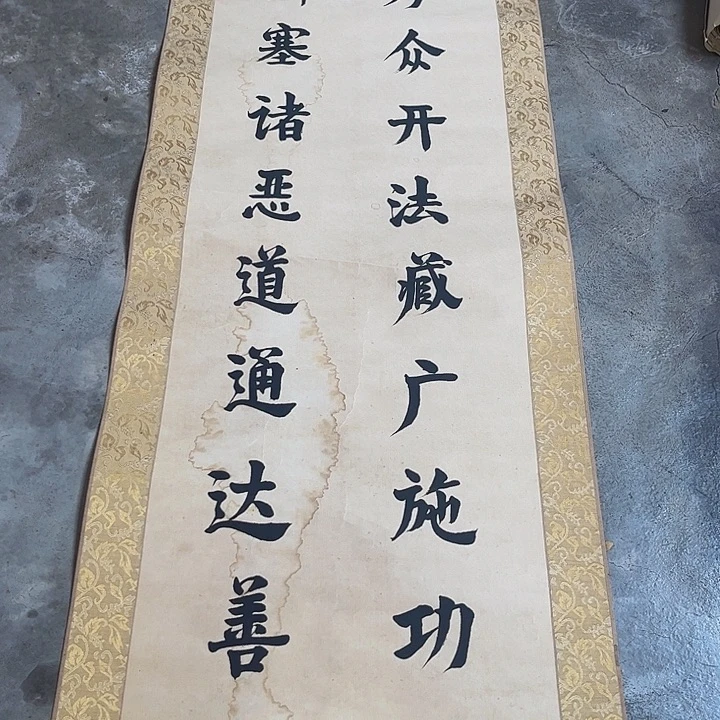 众开法藏广施功
塞诸恶道通达善